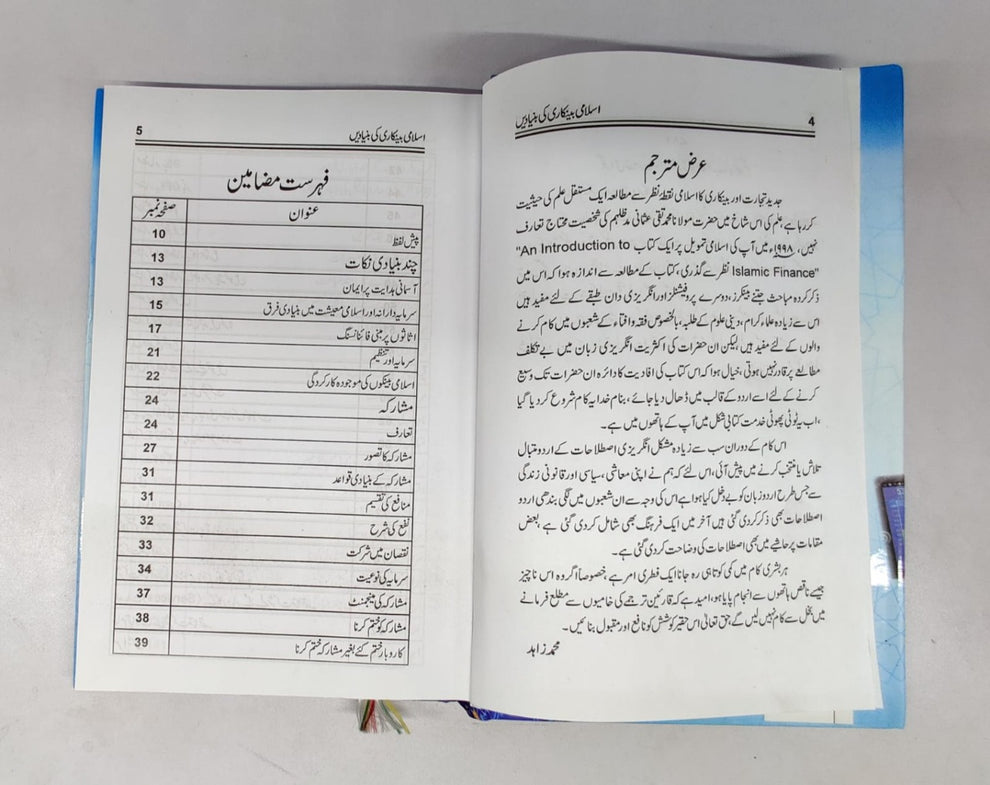 4
اسلامی بینکاری کی بنیادیں
عرض مترجم
جدید تجارت اور بینکاری کا اسلامی نقطۂ نظر سے مطالعہ ایک مستقل علم کی حیثیت
کر رہا ہے، علم کی اس شاخ میں حضرت مولانا محمد تقی عثمانی مدظلہم کی شخصیت محتاج تعارف
نہیں، ۱۹۹۸ء میں آپ کی اسلامی تمویل پر ایک کتاب "An Introduction to
Islamic Finance" نظر سے گذری، کتاب کے مطالعہ سے اندازہ ہوا کہ اس میں
ذکر کردہ مباحث جتنے بینکرز، دوسرے پروفیشنلز اور انگریزی دان طبقے کے لئے مفید ہیں
اس سے زیادہ علماء کرام، دینی علوم کے طلبہ، بالخصوص فقہ و افتاء کے شعبوں میں کام کرنے
والوں کے لئے مفید ہیں، لیکن ان حضرات کی اکثریت انگریزی زبان میں بے تکلف
مطالعے پر قادر نہیں ہوتی، خیال ہوا کہ اس کتاب کی افادیت کا دائرہ ان حضرات تک وسیع
کرنے کے لئے اسے اردو کے قالب میں ڈھال دیا جائے، بنام خدا یہ کام شروع کر دیا گیا
، اب یہ ٹوٹی پھوٹی خدمت کتابی شکل میں آپ کے ہاتھوں میں ہے۔
اس کام کے دوران سب سے زیادہ مشکل انگریزی اصطلاحات کے اردو متبادل
تلاش یا منتخب کرنے میں پیش آئی، اس لئے کہ ہم نے اپنی معاشی، سیاسی اور قانونی زندگی
سے جس طرح اردو زبان کو بے دخل کیا ہوا ہے اس کی وجہ سے ان شعبوں میں لگی بندھی اردو
اصطلاحات بھی ذکر کر دی گئی ہیں آخر میں ایک فرہنگ بھی شامل کر دی گئی ہے، بعض
مقامات پر حاشیے میں بھی اصطلاحات کی وضاحت کر دی گئی ہے۔
ہر بشری کام میں کمی کوتاہی رہ جانا ایک فطری امر ہے، خصوصاً اگر وہ اس ناچیز
جیسے ناقص ہاتھوں سے انجام پایا ہو، امید ہے کہ قارئین ترجمے کی خامیوں سے مطلع فرمانے
میں بخل سے کام نہیں لیں گے، حق تعالی اس حقیر کوشش کو نافع اور مقبول بنائیں۔
محمد زاہد
اسلامی بینکاری کی بنیادیں 5
فہرست مضامین
عنوان صفحہ نمبر
پیش لفظ 10
چند بنیادی نکات 13
آسمانی ہدایت پر ایمان 13
سرمایہ دارانہ اور اسلامی معیشت میں بنیادی فرق 15
اثاثوں پر مبنی فائنانسنگ 17
سرمایہ اور تنظیم 21
اسلامی بینکوں کی موجودہ کارکردگی 22
مشارکہ 24
تعارف 24
مشارکہ کا تصور 27
مشارکہ کے بنیادی قواعد 31
منافع کی تقسیم 31
نفع کی شرح 32
نقصان میں شرکت 33
سرمایہ کی نوعیت 34
مشارکہ کی مینجمنٹ 37
مشارکہ کو ختم کرنا 38
کاروبار ختم کئے بغیر مشارکہ ختم کرنا 39